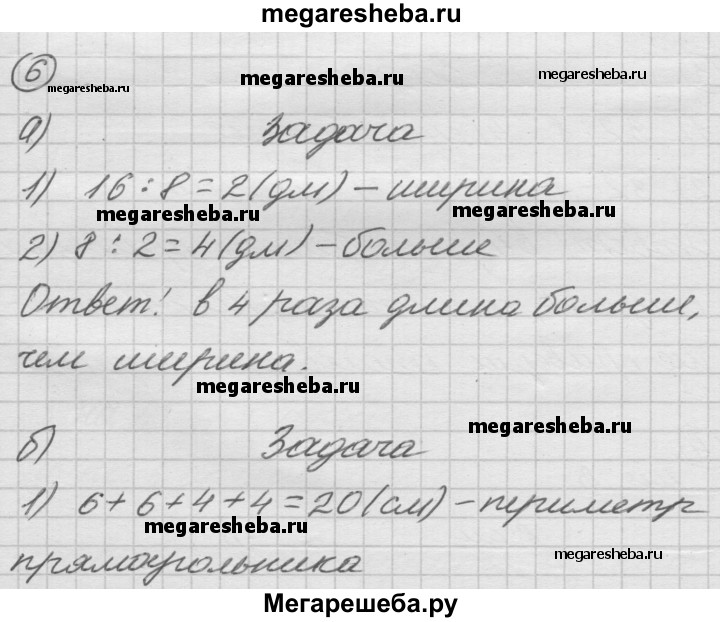 megaresheba.ru
6
megaresheba.ru megaresheba.ru megaresheba.ru
а) Задача
1) 16 : 8 = 2 (дм) – ширина
megaresheba.ru megaresheba.ru
2) 8 : 2 = 4 (дм) – больше
Ответ: в 4 раза длина больше,
чем ширина.
megaresheba.ru
megaresheba.ru
б) Задача
1) 6 + 6 + 4 + 4 = 20 (см) – периметр
megaresheba.ru
прямоугольника
megaresheba.ru
Мегарешеба.ру